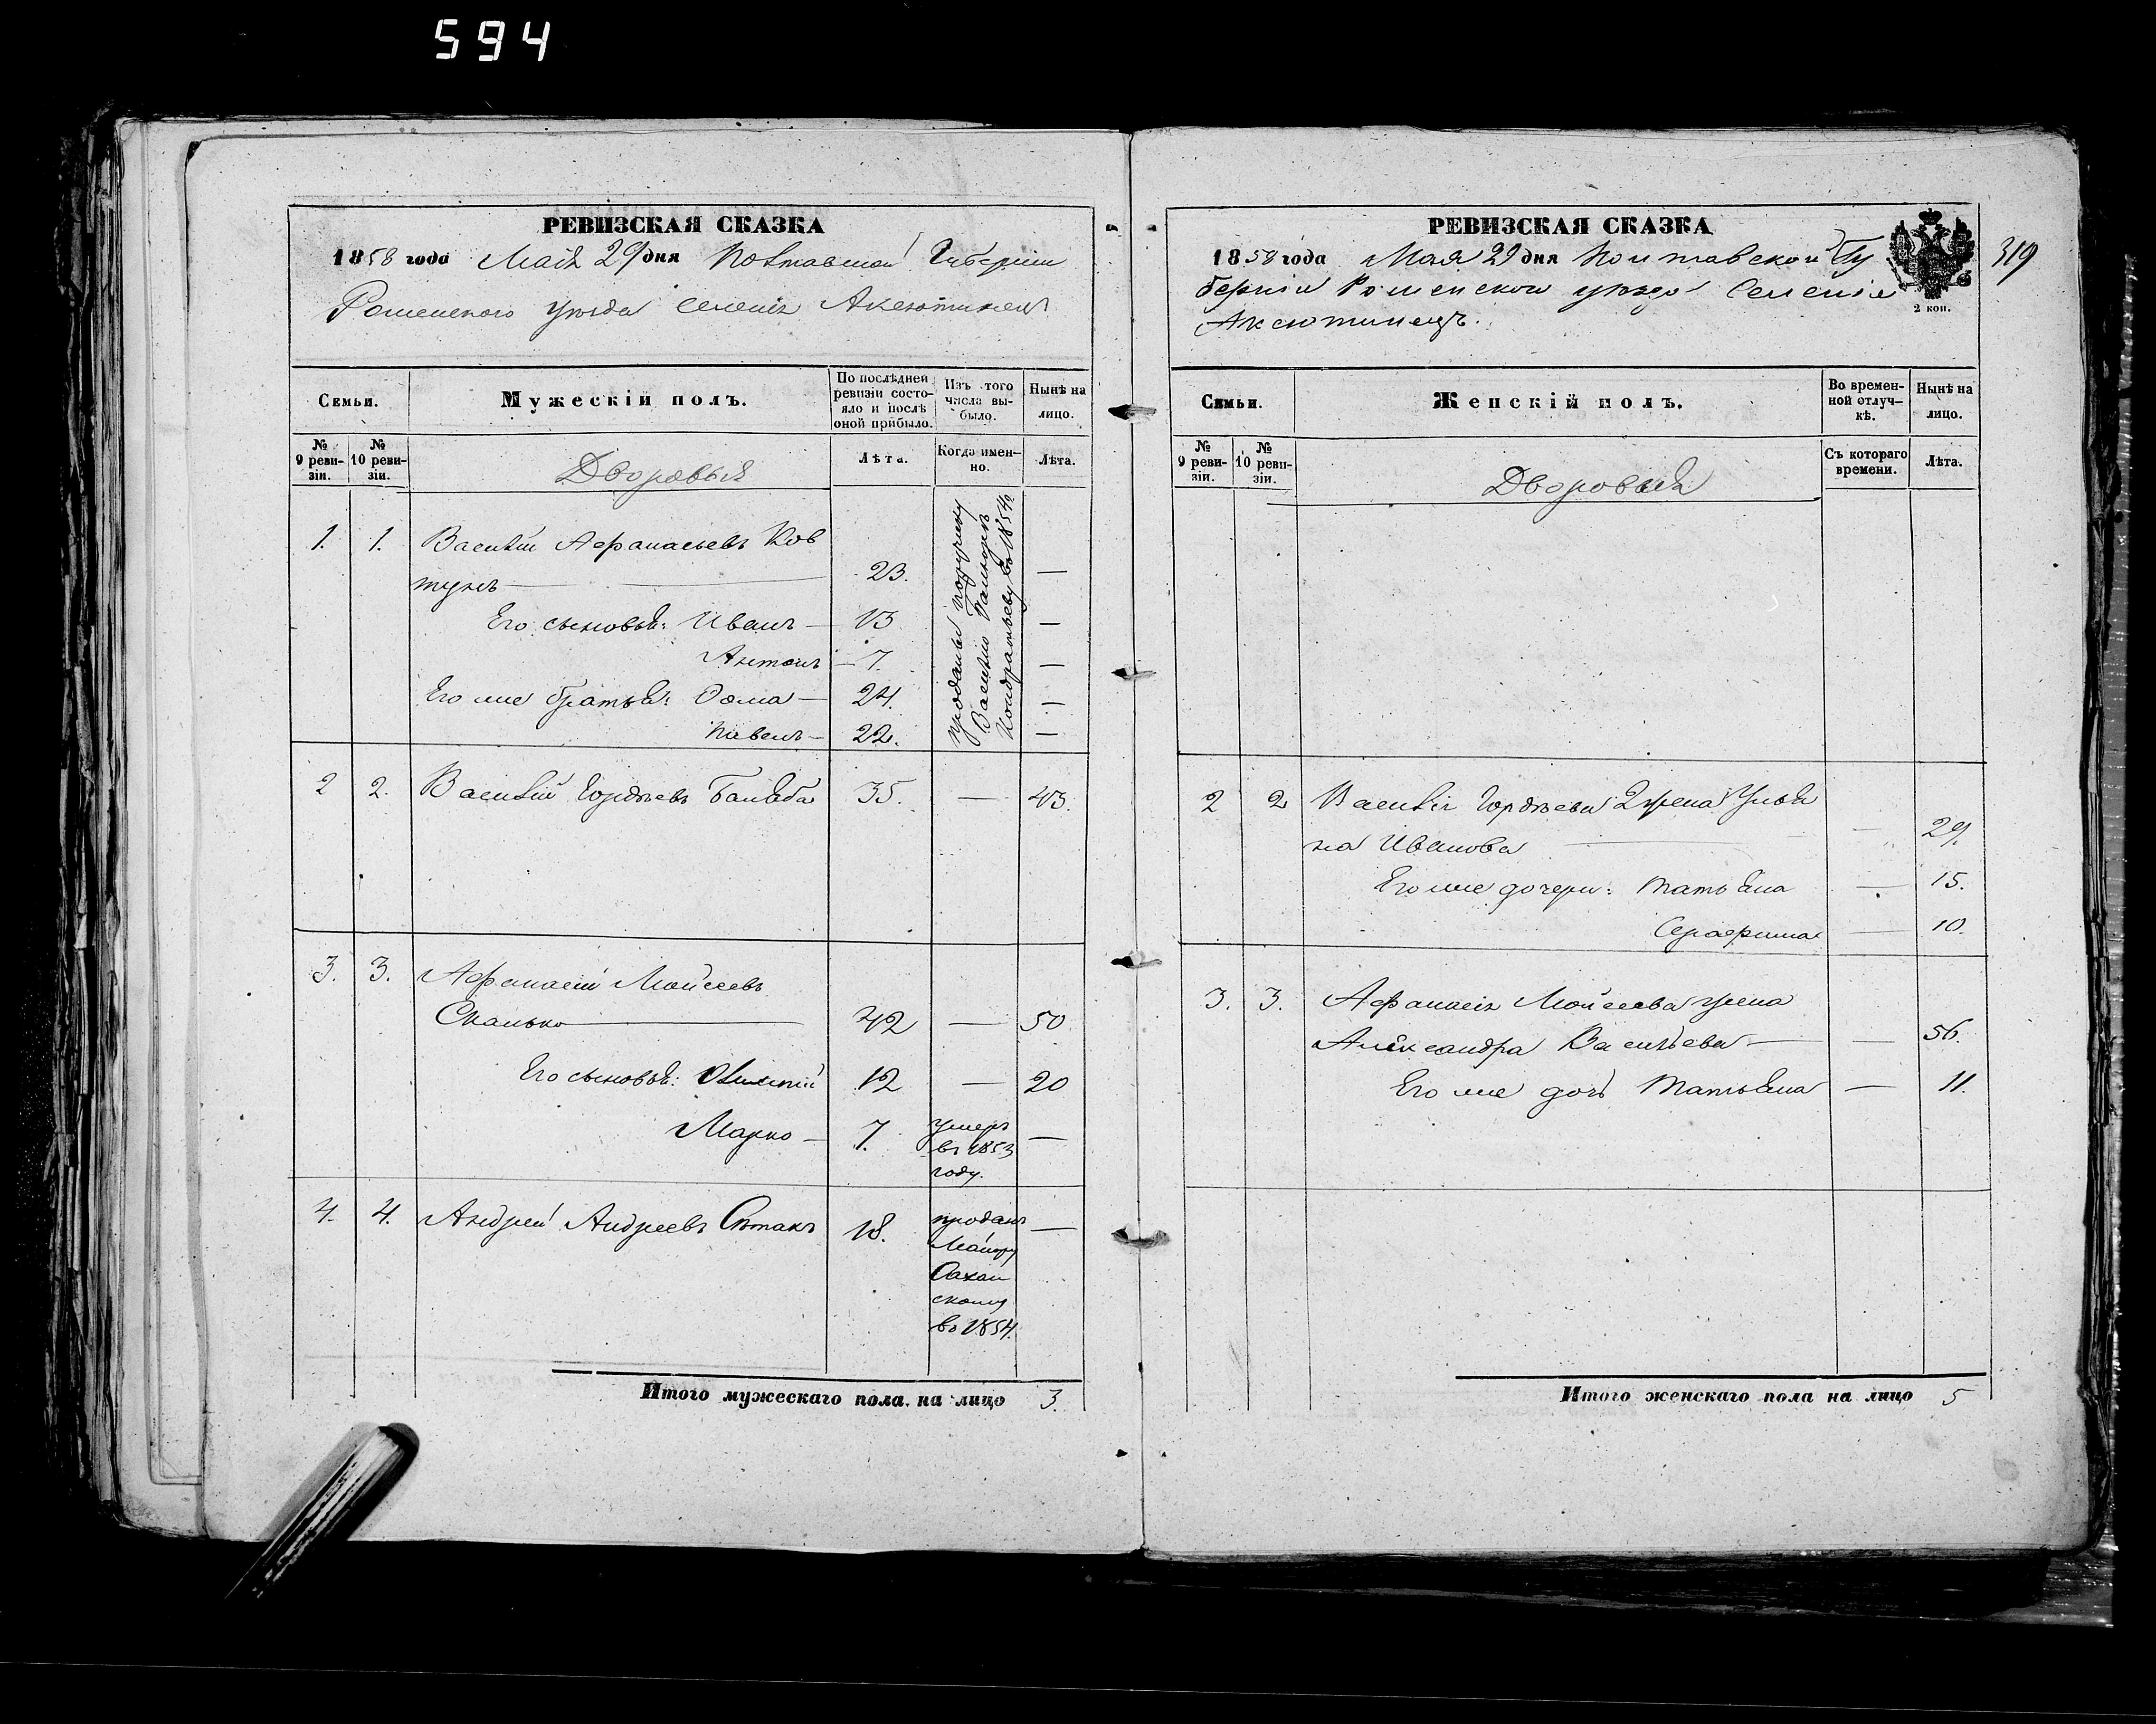 594
РЕВИЗСКАЯ СКАЗКА
1858 года Мая 29 дня Полтавской Губерніи
Роменского уѣзда селенія Аксютинецъ
Семьи.
Мужескій полъ.
По послѣдней ревизіи состояло и послѣ оной прибыло.
Изъ того числа выбыло.
Нынѣ на лицо.
№ 9 ревизіи.
№ 10 ревизіи.
Дворовыя
Лѣта.
Когда именно.
Лѣта.
1. 1. Василій Афанасьевъ Ков
тунъ — 23. —
Его сыновья: Иванъ — 13 —
Антонъ — 7. —
Его же братья: Ѳома — 24. —
Павелъ — 22. —
проданы
Василію
Кондратьеву въ 1854 г.
2 2. Василій Гордѣевъ 35. — 43.
3. 3. Афанасій Мойсеевъ
Скалько — 42 — 50
Его сыновья: 12 — 20
Марко — 7. умеръ —
въ 1853
году.
4. 4. Андрей Андреевъ 18. проданъ —
Маіору
скому
въ 1854.
Итого мужескаго пола на лицо 3.
РЕВИЗСКАЯ СКАЗКА
319
1858 года Мая 29 дня Полтавской Гу
берніи Роменской уѣзда Селенія
Аксютинецъ.
2 коп.
Семьи.
Женскій полъ.
Во временной отлучкѣ.
Нынѣ на лицо.
№ 9 ревизіи.
№ 10 ревизіи.
Дворовыя
Съ котораго времени.
Лѣта.
2 2 Василія Гордѣева жена Улья
на Иванова — 29.
Его же дочери: Татьяна — 15.
Серафима — 10.
3. 3. Афанасія Мойсеева жена
Александра Васильева — 56.
Его же дочь Татьяна — 11.
Итого женскаго пола на лицо 5